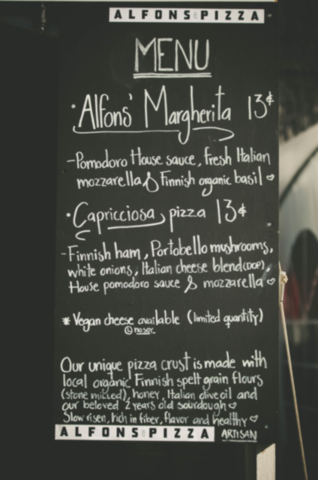 ALFONS PIZZA
MENU
• Alfons' Margherita 13€
- Pomodoro House sauce, fresh Italian
mozzarella & Finnish organic basil ♡
• Capricciosa pizza 13€
- Finnish ham, Portobello mushrooms,
white onions, Italian cheese blend (DOP),
House pomodoro sauce & mozzarella ♡
* Vegan cheese available (limited quantity)
Our unique pizza crust is made with
local organic Finnish spelt grain flours
(stone milled), honey, Italian olive oil and
our beloved 2 years old sourdough ♡
Slow risen, rich in fiber, flavor and healthy ♡
ALFONS PIZZA ARTISAN